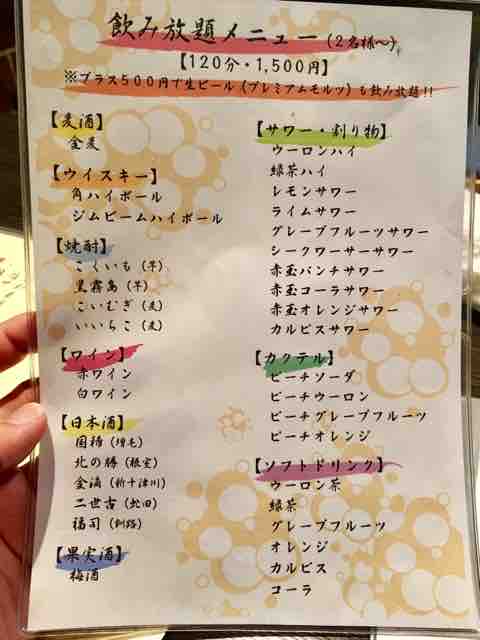 飲み放題メニュー(2名様〜)
【120分・1,500円】
※プラス500円で生ビール(プレミアムモルツ)も飲み放題!!
【麦酒】
金麦
【ウイスキー】
角ハイボール
ジムビームハイボール
【焼酎】
こくいも(芋)
黒霧島(芋)
こいむぎ(麦)
いいちこ(麦)
【ワイン】
赤ワイン
白ワイン
【日本酒】
国稀(増毛)
北の勝(根室)
金滴(新十津川)
二世古(虻田)
福司(釧路)
【果実酒】
梅酒
【サワー・割り物】
ウーロンハイ
緑茶ハイ
レモンサワー
ライムサワー
グレープフルーツサワー
シークワーサーサワー
赤玉パンチサワー
赤玉コーラサワー
赤玉オレンジサワー
カルピスサワー
【カクテル】
ピーチソーダ
ピーチウーロン
ピーチグレープフルーツ
ピーチオレンジ
【ソフトドリンク】
ウーロン茶
緑茶
グレープフルーツ
オレンジ
カルピス
コーラ